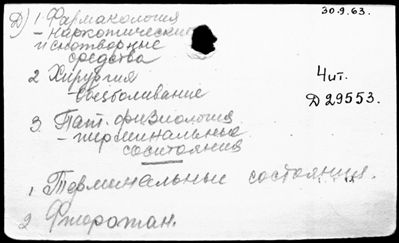 30.9.63.
Д) 1. Фармакология
- наркотические
и снотворные
средства
2 Хирургия
- обезболивание
Чит.
Д29553.
3. Пат. физиология
- терминальные
состояния
1. Терминальные состояния.
2 Фторотан.